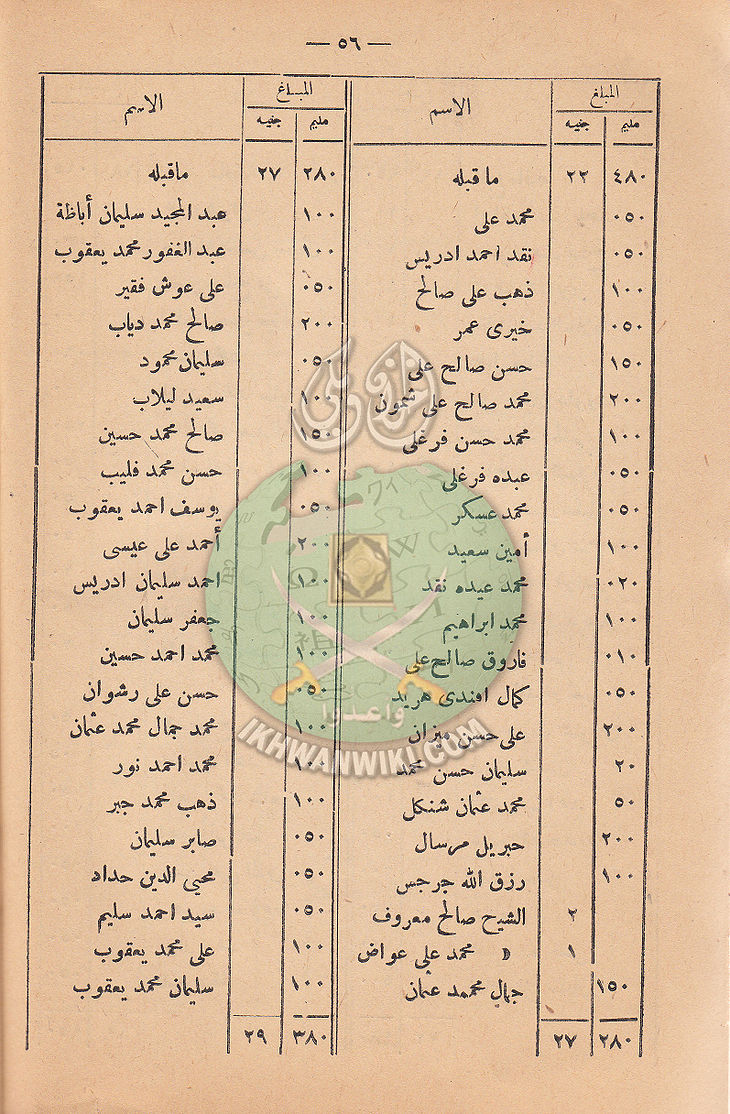 — ٥٦ —
المبلغ
الاسم
مليم جنيه
٤٨٠ ٢٢ ماقبله
٠٥٠ محمد على
٠٥٠ نقد احمد ادريس
١٠٠ ذهب على صالح
٠٥٠ خيرى عمر
١٥٠ حسن صالح على
٢٠٠ محمد صالح على شمون
١٠٠ محمد حسن فرغلى
٠٥٠ عبده فرغلى
٠٥٠ محمد عسكر
١٠٠ أمين سعيد
٠٢٠ محمد عيده نقد
١٠٠ محمد ابراهيم
٠١٠ فاروق صالح على
٠٥٠ كمال افندى هريد
٢٠٠ على حسن ميزان
٢٠ سليمان حسن محمد
٥٠ محمد عثمان شنكل
٢٠٠ جبريل مرسال
١٠٠ رزق الله جرجس
٢ الشيخ صالح معروف
١ » محمد علي عواض
١٥٠ جمال محمد عثمان
٢٨٠ ٢٧
المبلغ
الاسم
مليم جنيه
٢٨٠ ٢٧ ماقبله
١٠٠ عبد المجيد سليمان أباظة
١٠٠ عبد الغفور محمد يعقوب
٠٥٠ على عوش فقير
٢٠٠ صالح محمد دياب
٠٥٠ سليمان محمود
١٠٠ سعيد ليلاب
١٥٠ صالح محمد حسين
١٠٠ حسن محمد فليب
٠٥٠ يوسف احمد يعقوب
٢٠٠ أحمد على عيسى
١٠٠ احمد سليمان ادريس
١٠٠ جعفر سليمان
١٠٠ محمد احمد حسين
٠٥٠ حسن على رشوان
١٠٠ محمد جمال محمد عثمان
١٠٠ محمد احمد نور
١٠٠ ذهب محمد جبر
٠٥٠ صابر سليمان
٠٥٠ محيى الدين حداد
٠٥٠ سيد احمد سليم
١٠٠ على محمد يعقوب
١٠٠ سليمان محمد يعقوب
٣٨٠ ٢٩
واعدوا
IKHWANWIKI.COM